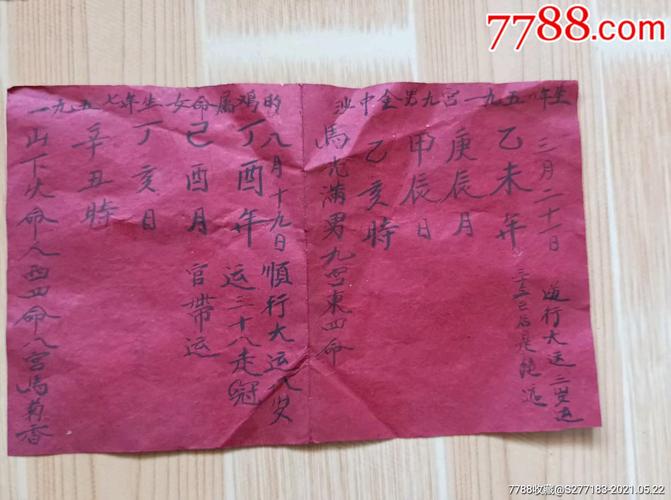 7788.com
沙中金男九宫一九五 年生
三月二十一日 逆行大运三岁运
乙未年 三十三已后是 运
庚辰月
甲辰日
乙亥時
馬 满男九宫東四命
一九五七年生女命属鸡的
八月十九日順行大运八岁
丁酉年 运三十八走冠
己酉月 官带运
丁亥日
辛丑時
山下火命人西四命八宫馬菊香
7788收藏@S277183-2021.05.22